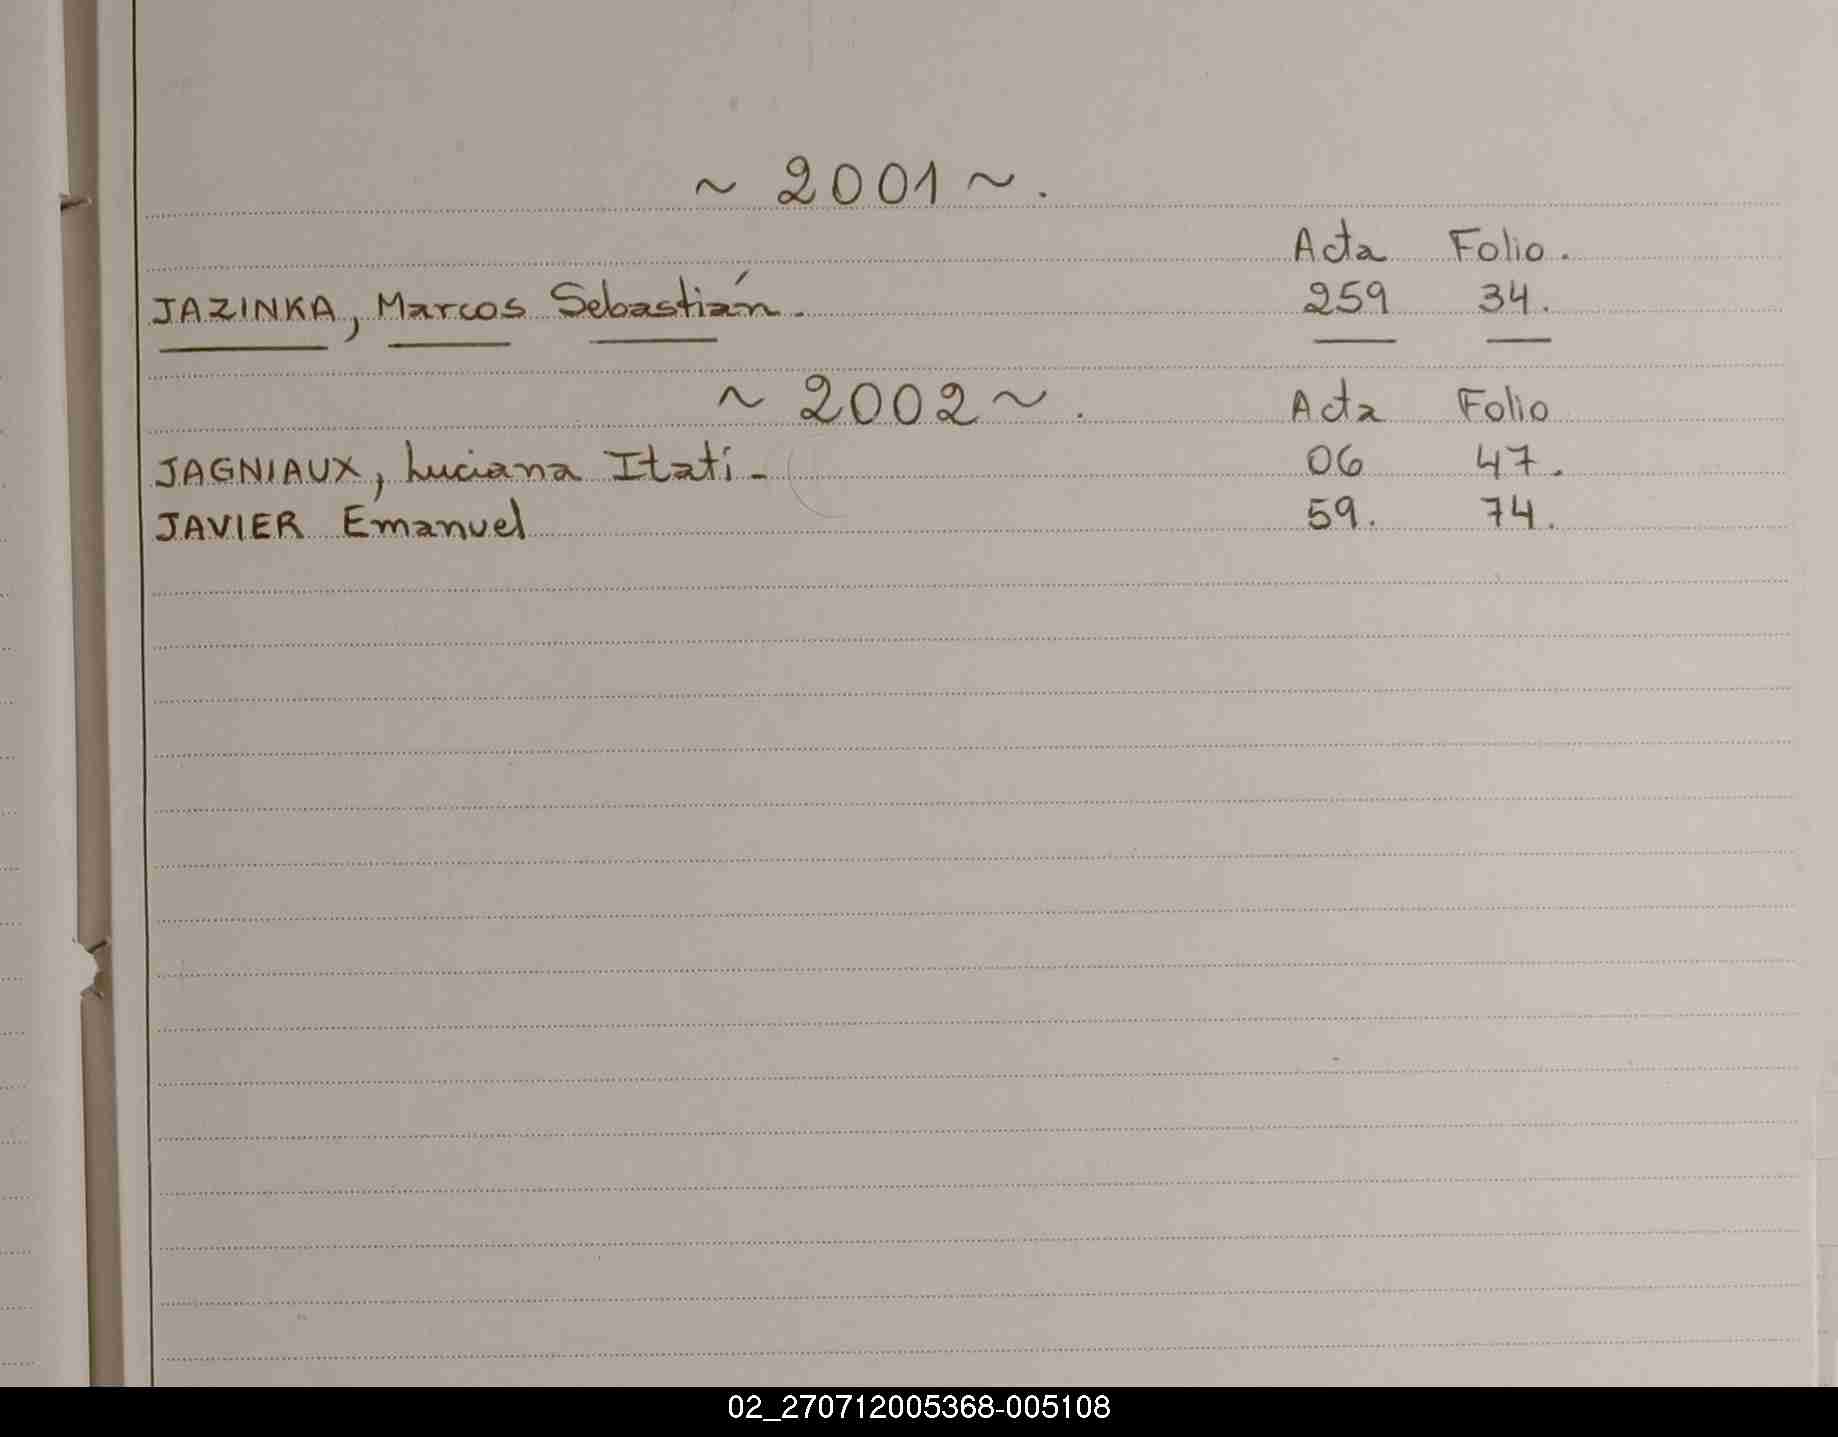 ~ 2001 ~.
Acta Folio.
JAZINKA, Marcos Sebastián. 259 34.
~ 2002 ~. Acta Folio
JAGNIAUX, Luciana Itatí - 06 47.
JAVIER Emanuel 59. 74.
02_270712005368-005108